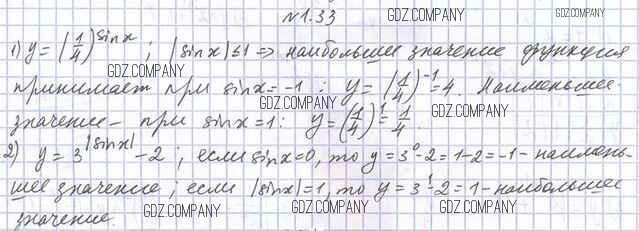 N1.33 GDZ.COMPANY
1) y = (1/4)^sinx ; |sinx| ≤ 1 => наибольшее значение функция
GDZ.COMPANY GDZ.COMPANY
принимает при sinx = -1 : y = (1/4)^-1 = 4. Наименьшее
GDZ.COMPANY
значение – при sinx = 1: y = (1/4)^1 = 1/4.
GDZ.COMPANY GDZ.COMPANY
2) y = 3^|sinx| - 2 ; если sinx = 0, то y = 3^0 - 2 = 1 - 2 = -1 - наимень-
шее значение; если |sinx| = 1, то y = 3^1 - 2 = 1 - наибольшее
значение.
GDZ.COMPANY GDZ.COMPANY GDZ.COMPANY